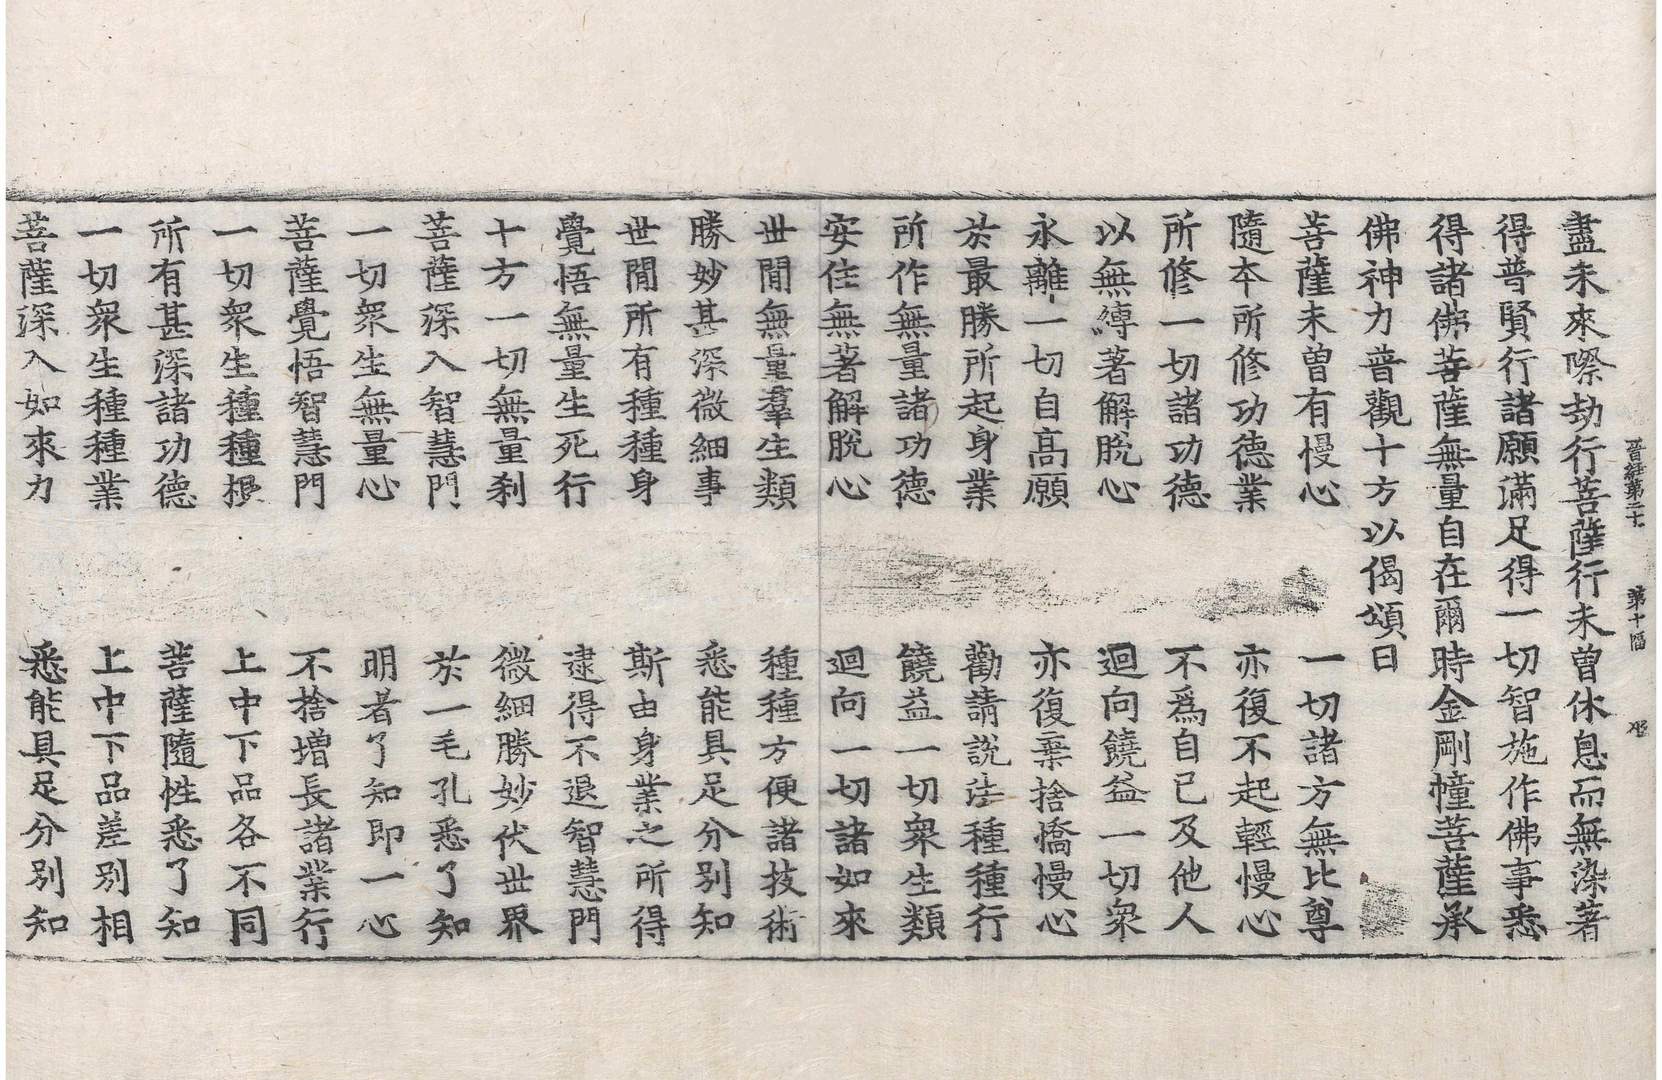 晋経第二十 第十幅
盡未來際劫行菩薩行未曾休息而無染著
得普賢行諸願滿足得一切智施作佛事悉
得諸佛菩薩無量自在爾時金剛幢菩薩承
佛神力普觀十方以偈頌曰
菩薩未曾有慢心 一切諸方無比尊
隨本所修功德業 亦復不起輕慢心
所修一切諸功德 不爲自己及他人
以無縛著解脫心 迴向饒益一切衆
永離一切自高願 亦復棄捨憍慢心
於最勝所起身業 勸請說法種種行
所作無量諸功德 饒益一切衆生類
安住無著解脫心 迴向一切諸如來
世間無量羣生類 種種方便諸技術
勝妙甚深微細事 悉能具足分別知
世間所有種種身 斯由身業之所得
覺悟無量生死行 逮得不退智慧門
十方一切無量刹 微細勝妙伏世界
菩薩深入智慧門 於一毛孔悉了知
一切衆生無量心 明者了知即一心
菩薩覺悟智慧門 不捨增長諸業行
一切衆生種種根 上中下品各不同
所有甚深諸功德 菩薩隨性悉了知
一切衆生種種業 上中下品差別相
菩薩深入如來力 悉能具足分別知